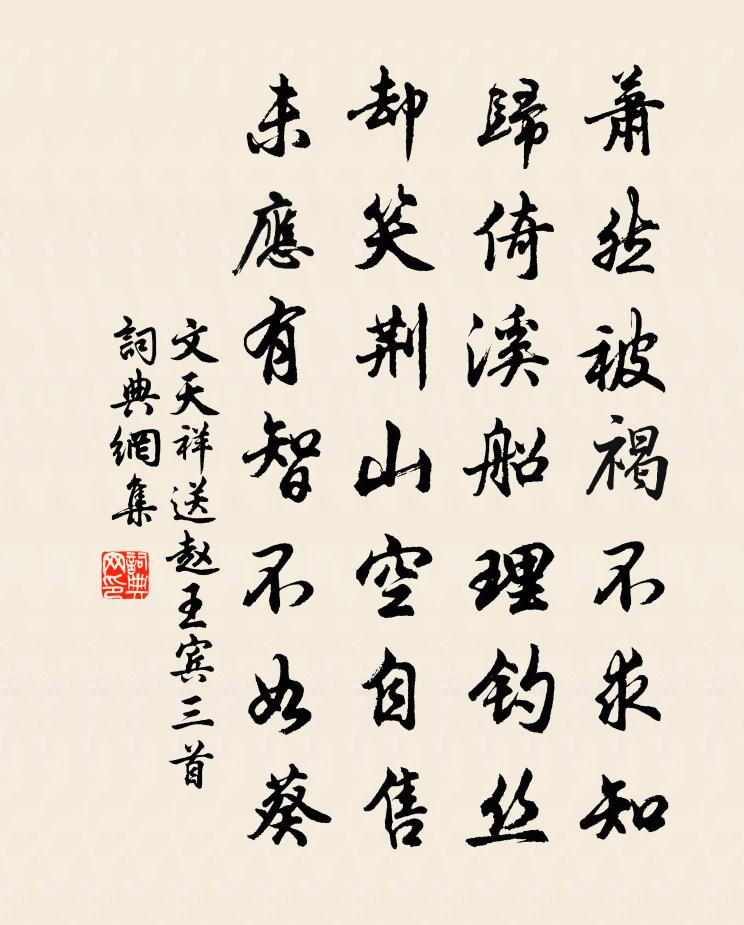 萧然被褐不求知
歸倚溪船理钓丝
却笑荆山空自售
未應有智不如葵
文天祥送赵王宾三首
詞典網集
詞典网印